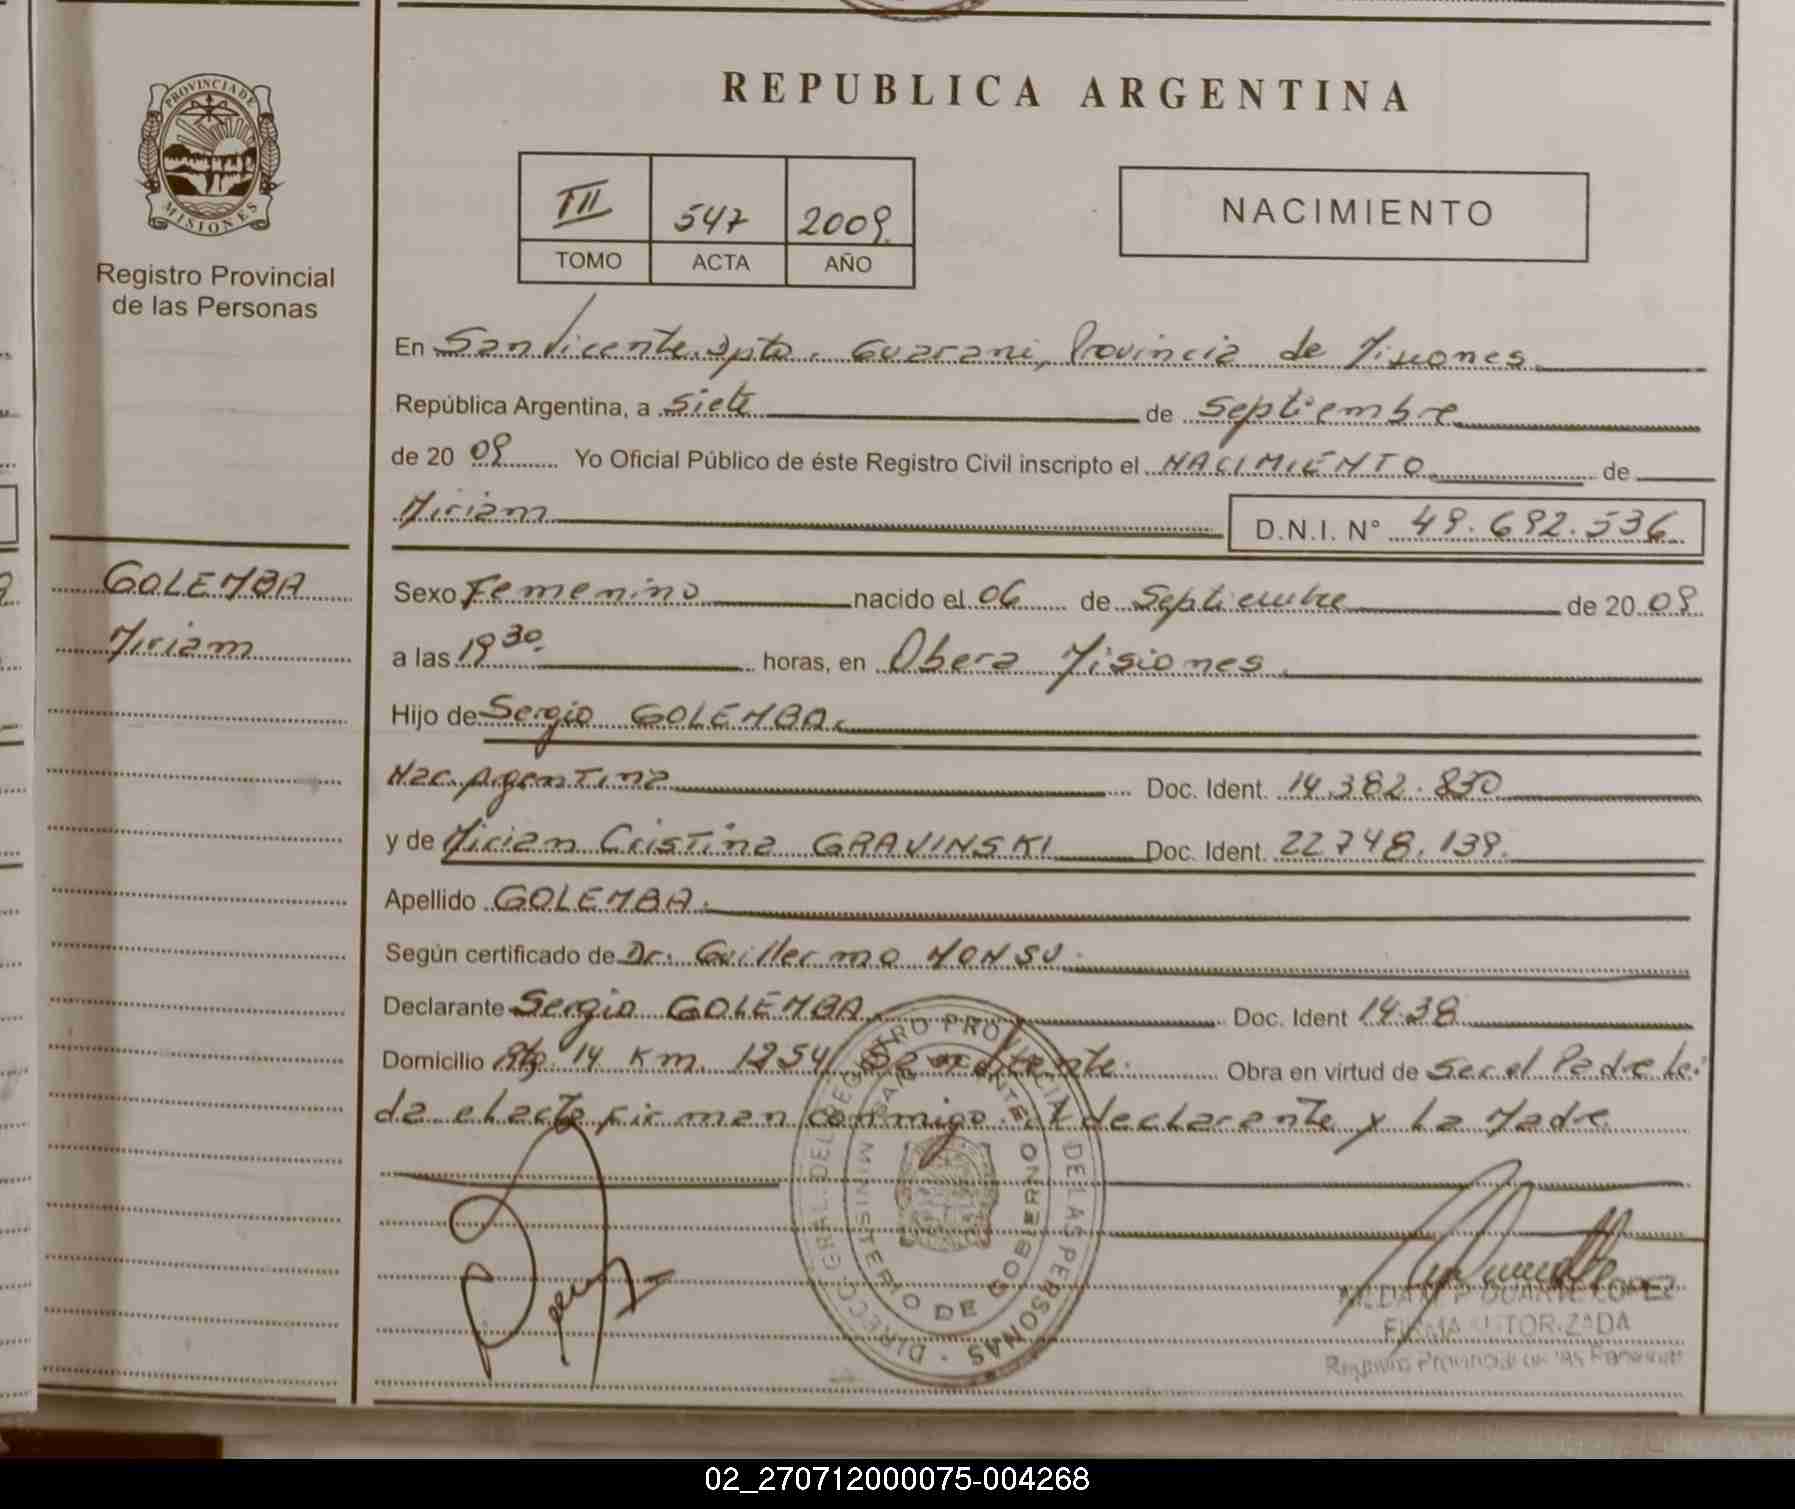 REPUBLICA ARGENTINA
PROVINCIA DE
MISIONES
Registro Provincial
de las Personas
III 547 2009
TOMO ACTA AÑO
NACIMIENTO
En San Vicente. Dpto. Guarani, Provincia de Misiones
República Argentina, a Siete de Septiembre
de 20 09 Yo Oficial Público de éste Registro Civil inscripto el NACIMIENTO de
Miriam D.N.I. N° 49.692.536
GOLEMBA
Miriam
Sexo Femenino nacido el 06 de Septiembre de 20 09
a las 19 30 horas, en Obera Misiones
Hijo de Sergio GOLEMBA.
Nac. Argentina Doc. Ident. 14.382.830
y de Mirian Cristina GRAVINSKI Doc. Ident. 22748.139.
Apellido GOLEMBA.
Según certificado de Dr. Guillermo MONSU
Declarante Sergio GOLEMBA Doc. Ident 14.38
Domicilio Rta. 14 Km. 1254 Obra en virtud de Ser el Padre Lei
da el acta firman conmigo. el declarante y La Madre
DIRECC. GERAL. DEL REGISTRO PROVINCIAL DE LAS PERSONAS
MINISTERIO DE GOBIERNO
DUARTE LOPEZ
FIRMA AUTORIZADA
Registro Provincial de las Personas
02_270712000075-004268